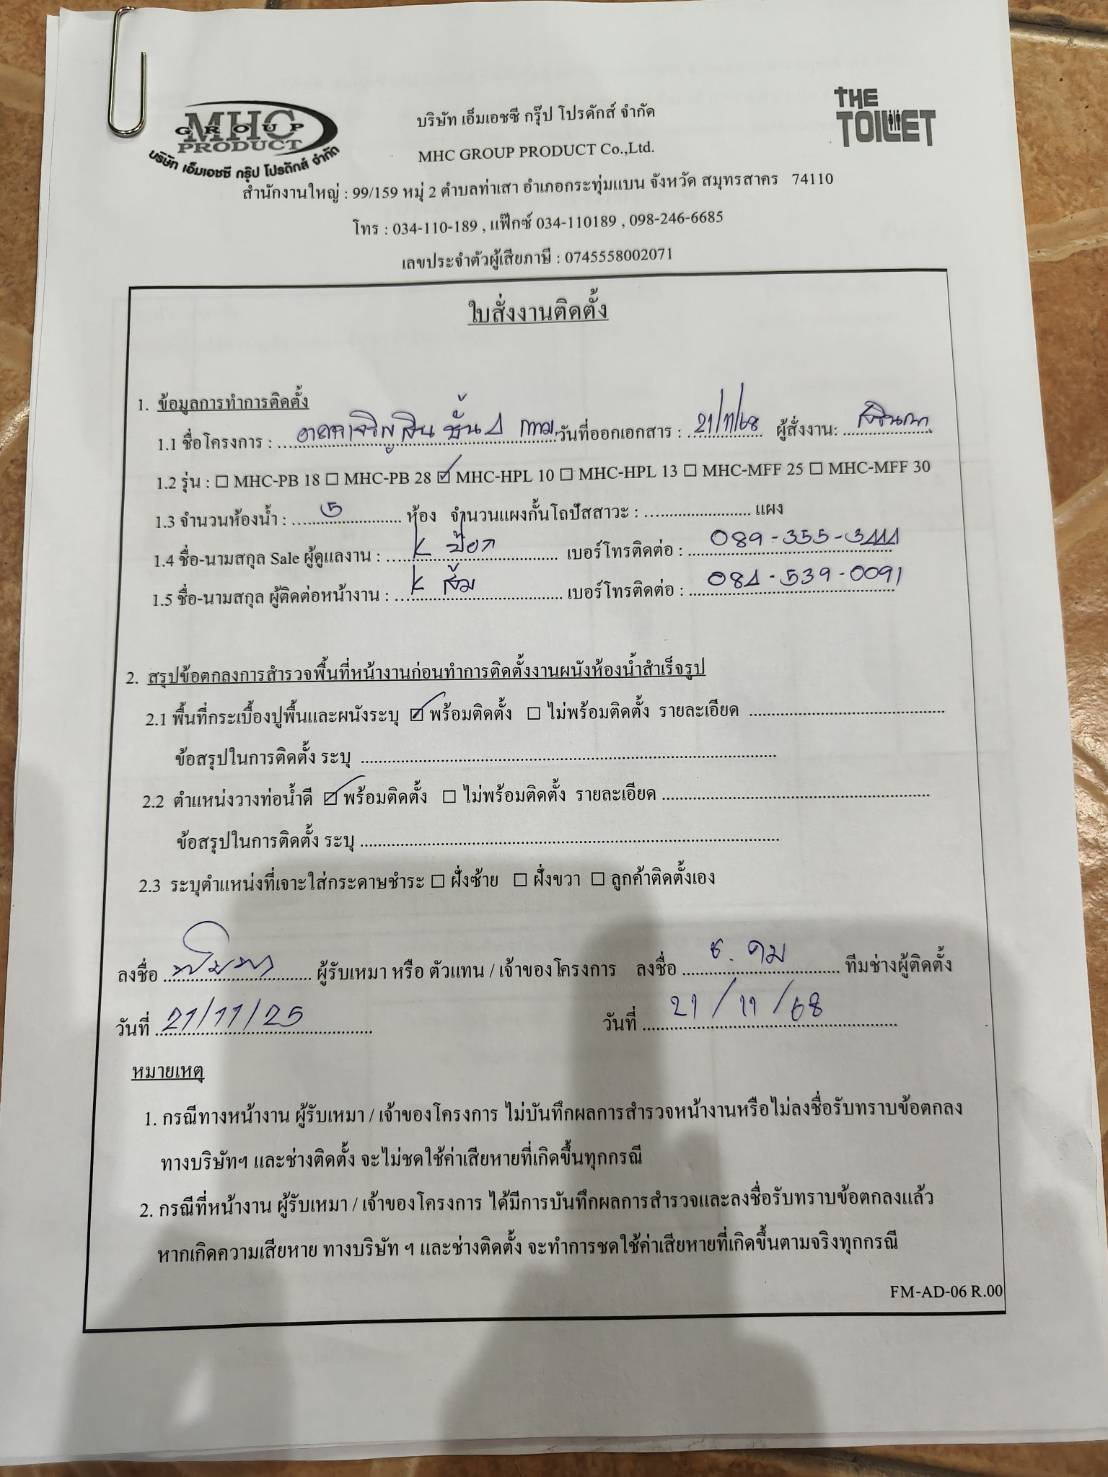 MHC
GROUP
PRODUCT
บริษัท เอ็มเอชซี กรุ๊ป โปรดักส์ จำกัด
THE
TOILET
บริษัท เอ็มเอชซี กรุ๊ป โปรดักส์ จำกัด
MHC GROUP PRODUCT Co.,Ltd.
สำนักงานใหญ่ : 99/159 หมู่ 2 ตำบลท่าเสา อำเภอกระทุ่มแบน จังหวัด สมุทรสาคร 74110
โทร : 034-110-189 , แฟ็กซ์ 034-110189 , 098-246-6685
เลขประจำตัวผู้เสียภาษี : 0745558002071
ใบสั่งงานติดตั้ง
1. ข้อมูลการทำการติดตั้ง
1.1 ชื่อโครงการ : อาคารเจริญสิน ชั้น 4 กทม. วันที่ออกเอกสาร : 21/11/68 ผู้สั่งงาน:
1.2 รุ่น : ☐ MHC-PB 18 ☐ MHC-PB 28 ☑ MHC-HPL 10 ☐ MHC-HPL 13 ☐ MHC-MFF 25 ☐ MHC-MFF 30
1.3 จำนวนห้องน้ำ : 5 ห้อง จำนวนแผงกั้นโถปัสสาวะ : แผง
1.4 ชื่อ-นามสกุล Sale ผู้ดูแลงาน : K ป๊อก เบอร์โทรติดต่อ : 089-355-3444
1.5 ชื่อ-นามสกุล ผู้ติดต่อหน้างาน : K ส้ม เบอร์โทรติดต่อ : 084-539-0091
2. สรุปข้อตกลงการสำรวจพื้นที่หน้างานก่อนทำการติดตั้งงานผนังห้องน้ำสำเร็จรูป
2.1 พื้นที่กระเบื้องปูพื้นและผนังระบุ ☑ พร้อมติดตั้ง ☐ ไม่พร้อมติดตั้ง รายละเอียด
ข้อสรุปในการติดตั้ง ระบุ
2.2 ตำแหน่งวางท่อน้ำดี ☑ พร้อมติดตั้ง ☐ ไม่พร้อมติดตั้ง รายละเอียด
ข้อสรุปในการติดตั้ง ระบุ
2.3 ระบุตำแหน่งที่เจาะใส่กระดาษชำระ ☐ ฝั่งซ้าย ☐ ฝั่งขวา ☐ ลูกค้าติดตั้งเอง
ลงชื่อ ผู้รับเหมา หรือ ตัวแทน / เจ้าของโครงการ ลงชื่อ ช. คม ทีมช่างผู้ติดตั้ง
วันที่ 21/11/25 วันที่ 21/11/68
หมายเหตุ
1. กรณีทางหน้างาน ผู้รับเหมา / เจ้าของโครงการ ไม่บันทึกผลการสำรวจหน้างานหรือไม่ลงชื่อรับทราบข้อตกลง
ทางบริษัทฯ และช่างติดตั้ง จะไม่ชดใช้ค่าเสียหายที่เกิดขึ้นทุกกรณี
2. กรณีที่หน้างาน ผู้รับเหมา / เจ้าของโครงการ ได้มีการบันทึกผลการสำรวจและลงชื่อรับทราบข้อตกลงแล้ว
หากเกิดความเสียหาย ทางบริษัท ฯ และช่างติดตั้ง จะทำการชดใช้ค่าเสียหายที่เกิดขึ้นตามจริงทุกกรณี
FM-AD-06 R.00